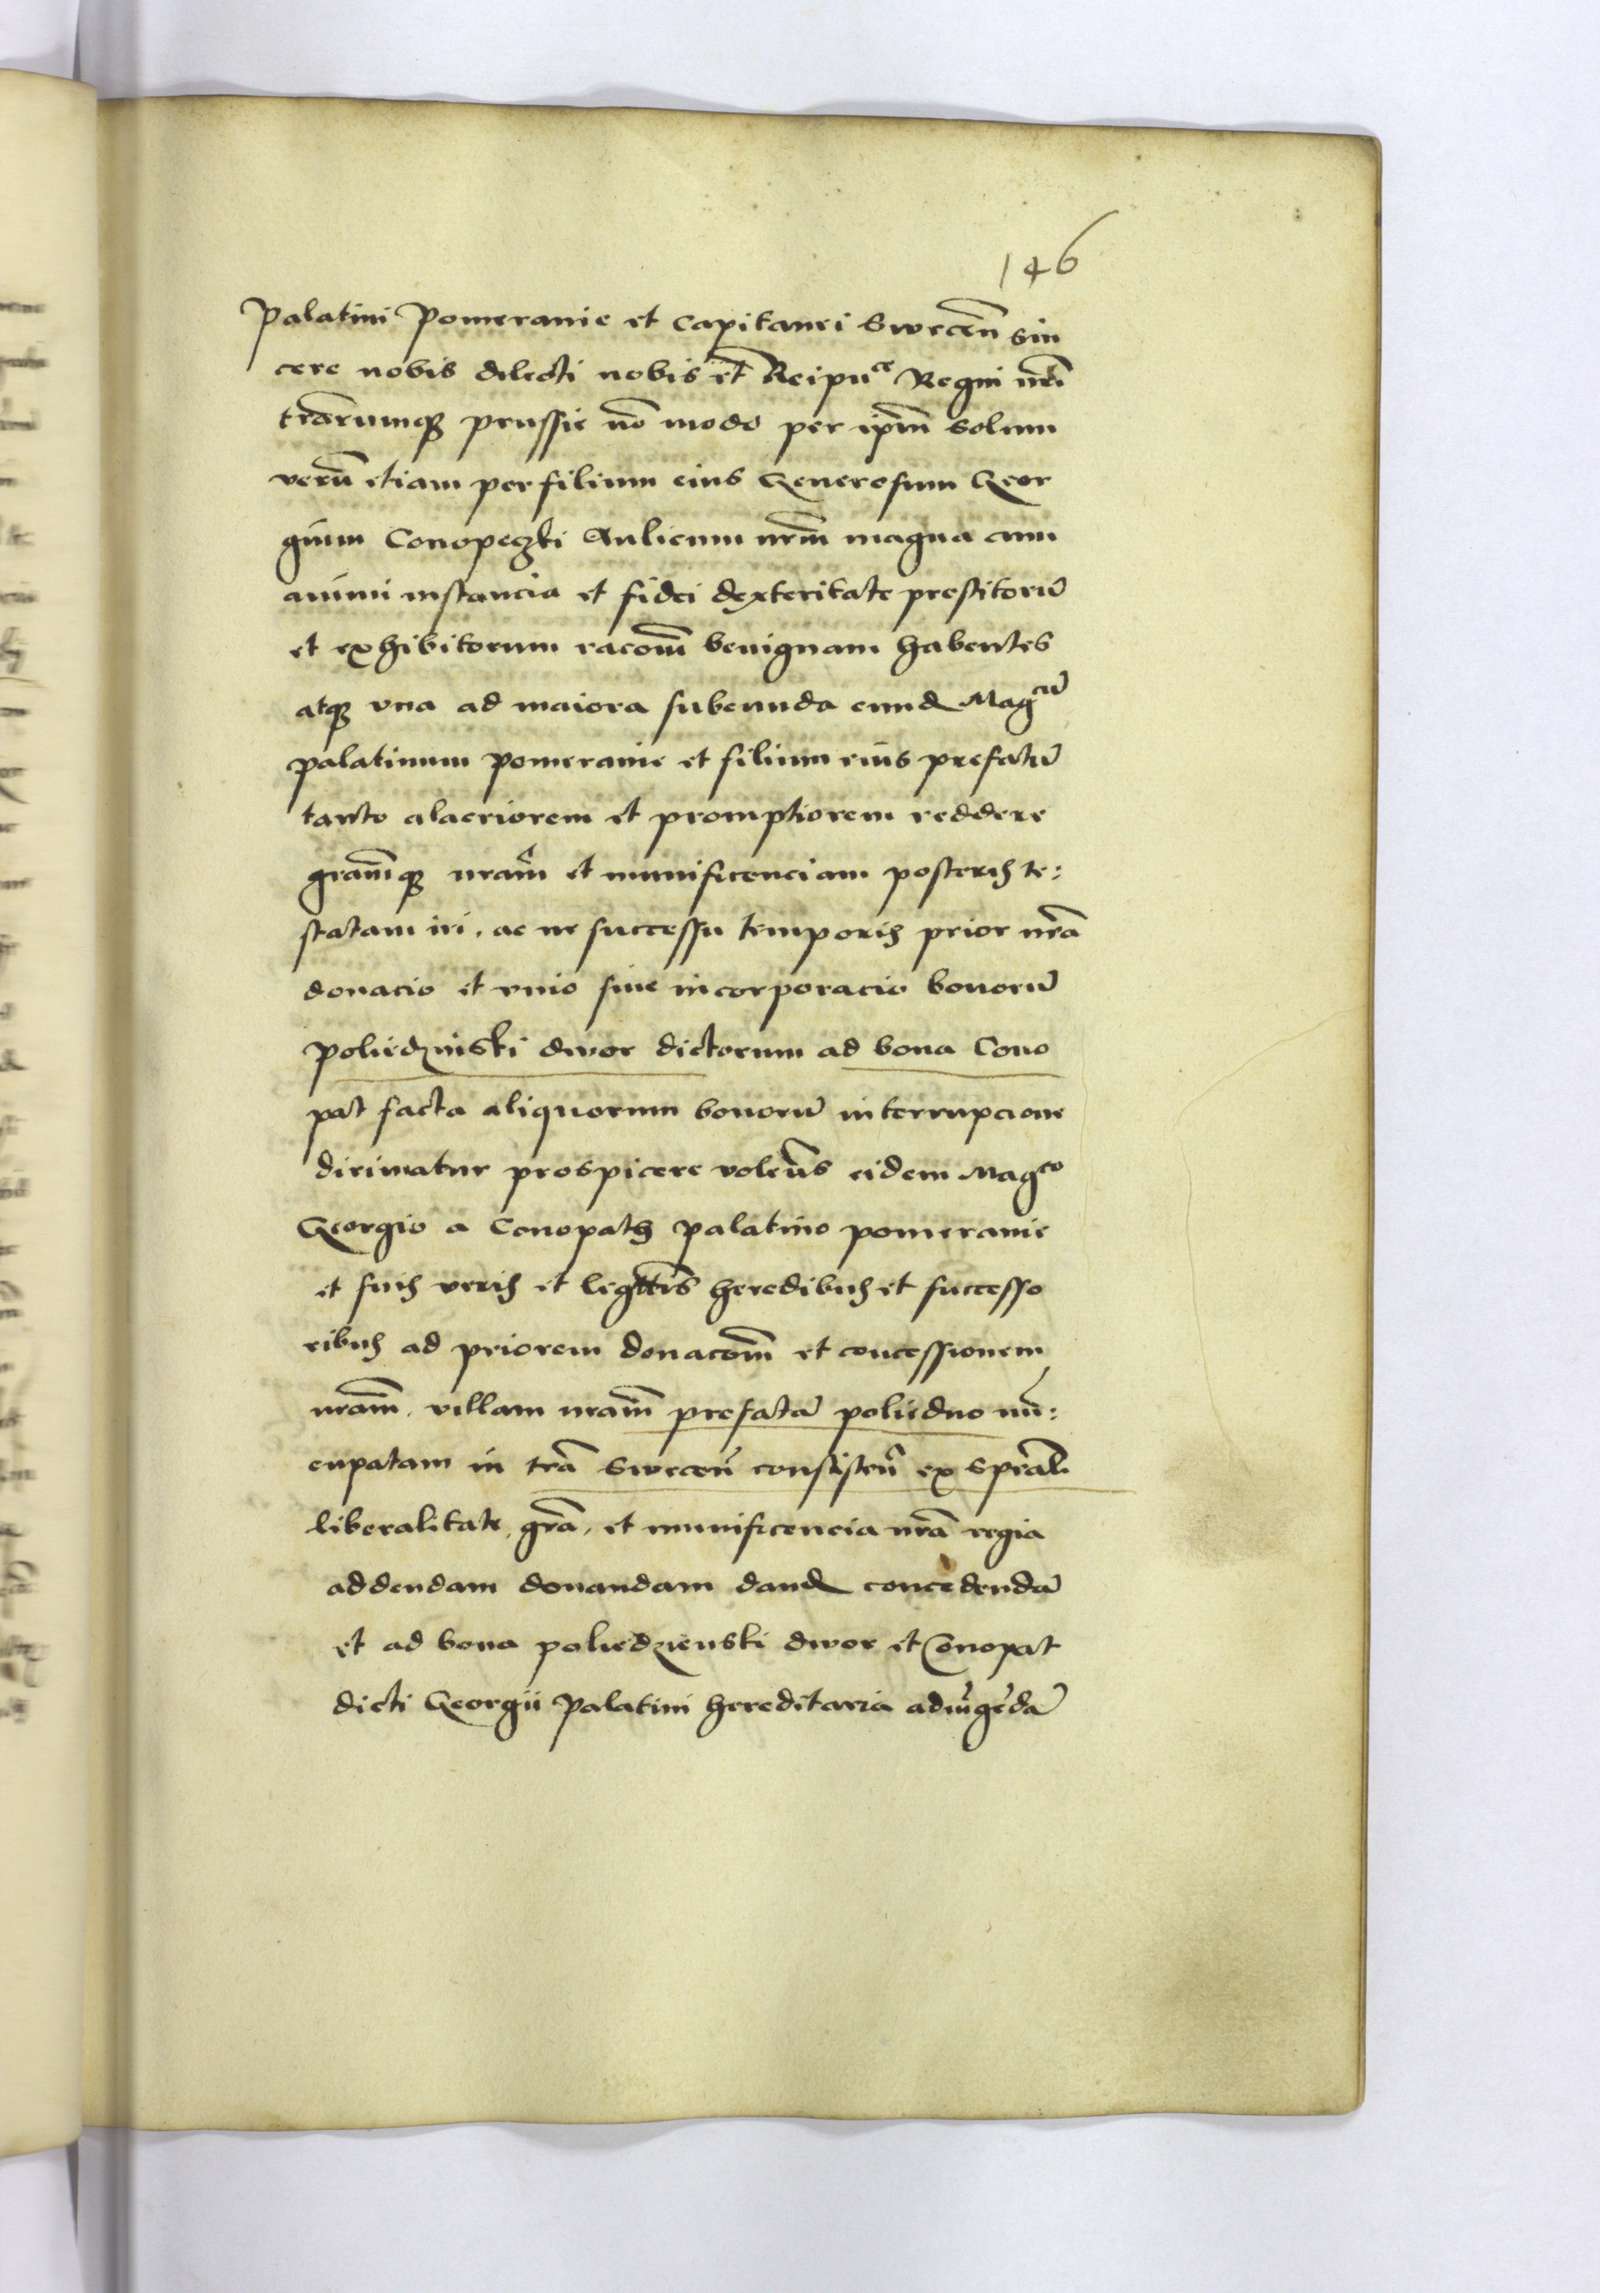 146
Palatini Pomeranie et Capitanei Swecen̄ sin
cere nobis dilecti nobis et Reipuce Regni nr̄i
tr̄arumqꝫ prussie nō modo per ip̄m̄ solum
verū etiam per filium eius Generosum Geor
gium Conopeczki Aulicum nr̄m̄ magna cum
animi instancia et fidei dexteritate prestitorū
et exhibitorum racoēm benignam habentes
atqꝫ vna ad maiora subeunda eund Magcū
palatinum Pomeranie et filium eius prefatū
tanto alacriorem et promptiorem reddere
gram̄qꝫ nrām et munificenciam posteris te:
statam iri, ac ne successu temporis prior nr̄a
donacio et vnio siue incorporacio bonorū
Poliedzinski dwor dictorum ad bona Cono
pat facta aliquorum bonorū interrupcione
dirimatur prospicere volen̄s eidem Magco
Georgio a Conopath palatino pomeranie
et suis veris et legttīs heredibus et successo
ribus ad priorem donacoēm et concessionem
nram̄, villam nram̄ prefatā poliedno nū:
cupatam in tr̄a Swecen̄ consisten̄ ex spēali
liberalitate, gr̄a, et munificencia nr̄a regia
addendam donandam dand concedendā
et ad bona poliedzienski dwor et Conopat
dicti Georgii Palatini hereditaria adiūgēdā